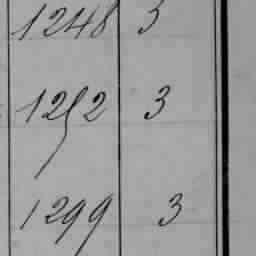 1248 3
1252 3
1299 3